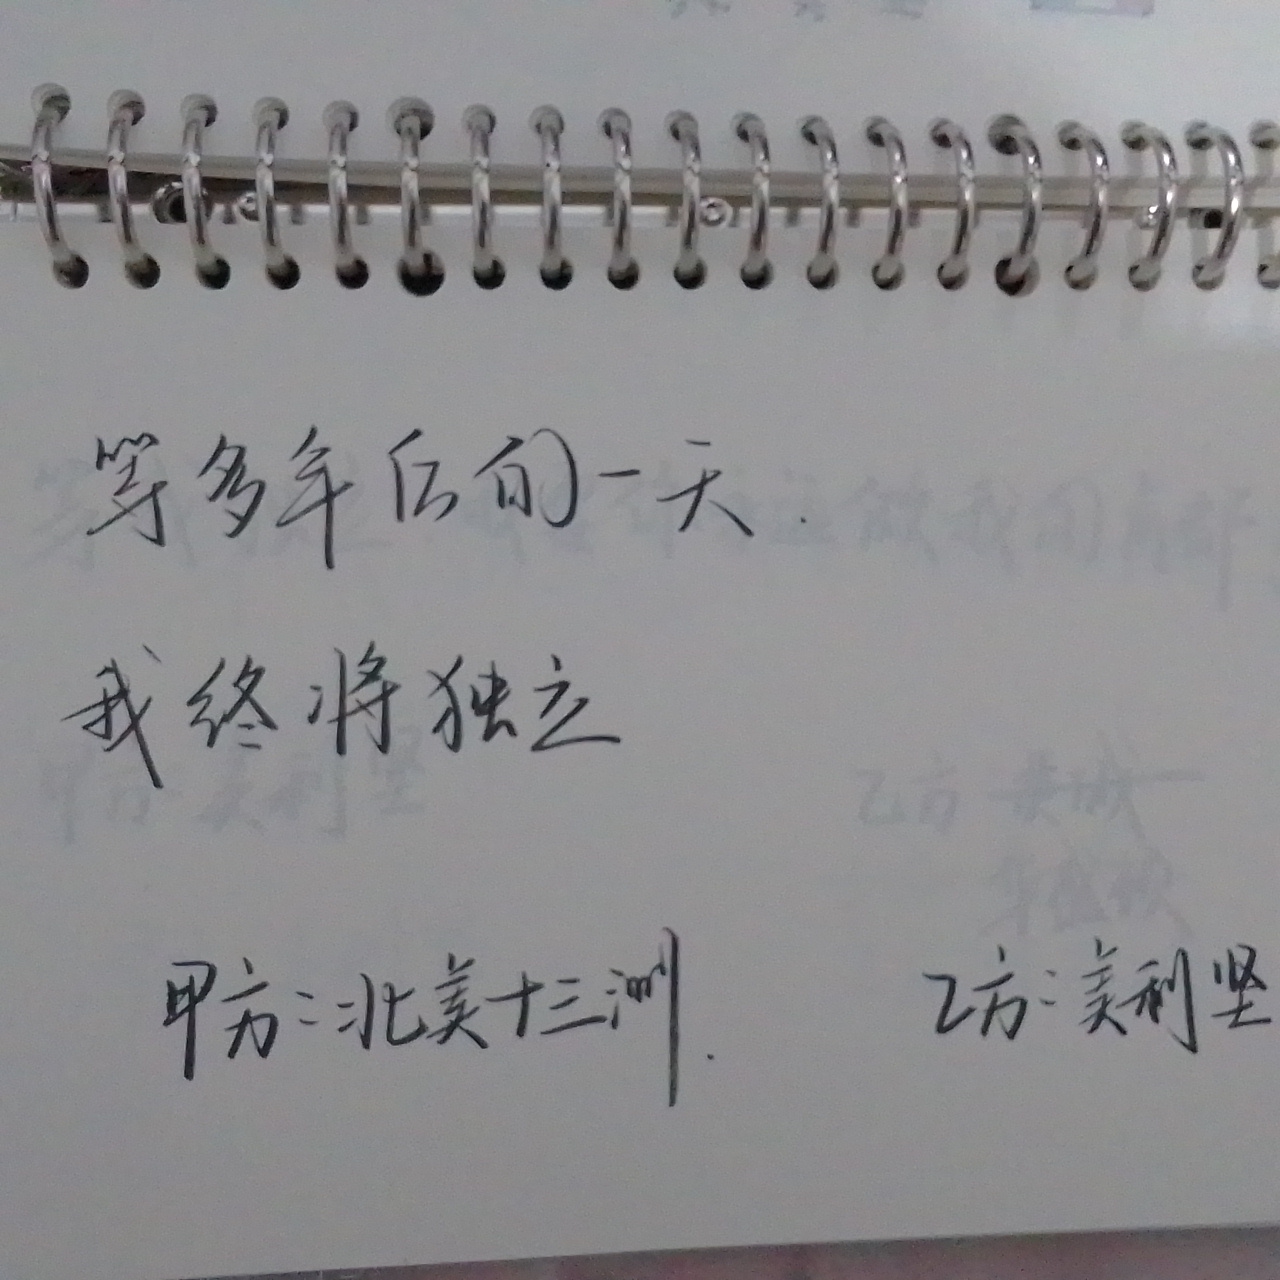 等多年后的一天.
我终将独立
甲方:北美十三洲. 乙方:美利坚